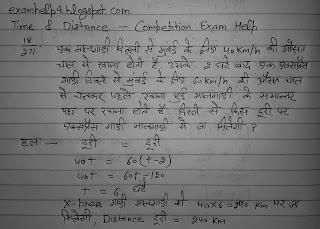 examhelp9.blogspot.com
Time & Distance - Competition Exam Help
18
271
एक मालगाड़ी दिल्ली से मुंबई के लिए 40 Km/h की औसत
चाल से रवाना होती है। उसके 2 घंटे बाद एक एक्सप्रैस
गाड़ी दिल्ली से मुंबई के लिए 60 Km/h की औसत चाल
से चलकर पहले रवाना हुई मालगाड़ी के समान्तर
पथ पर रवाना होती है। दिल्ली से किस दूरी पर
एक्सप्रैस गाड़ी मालगाड़ी से जा मिलेगी ?
हल - दूरी = दूरी
40t = 60(t-2)
40t = 60t-120
t = 6 घंटे
X-press गाड़ी मालगाड़ी से 40x6 = 240 Km पर जा
मिलेगी, Distance दूरी = 240 Km